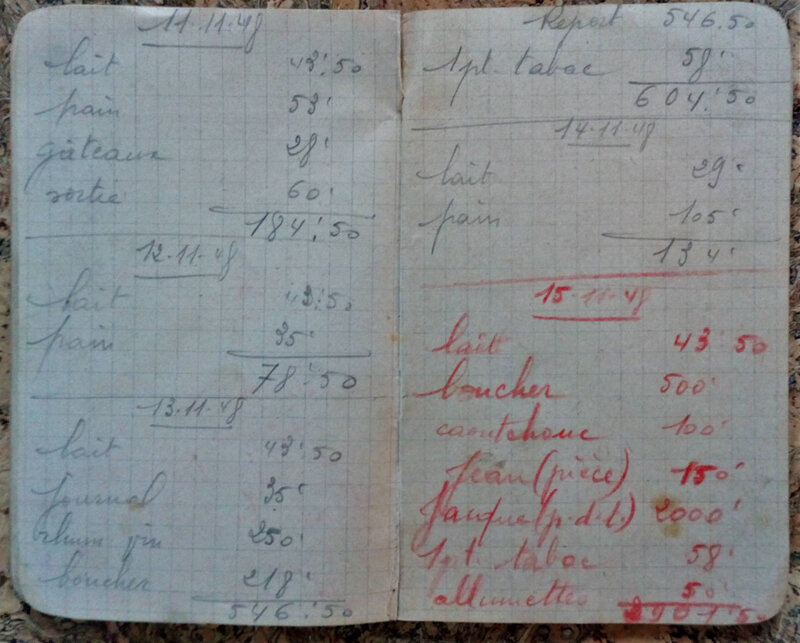 11.11.48
lait 43'50
pain 53'
gâteaux 28'
sortie 60'
184'50
12.11.48
lait 43'50
pain 35'
78'50
13.11.48
lait 43'50
journal 35'
rhum vin 250'
boucher 218'
546'50
Report 546.50
1 pt. tabac 58'
604'50
14.11.48
lait 29'
pain 105'
134'
15.11.48
lait 43'50
boucher 500'
caoutchouc 100'
Jean (pièce) 150'
Jacque (p.d.t.) 2000'
1 pt. tabac 58'
allumettes 50'
2901'50